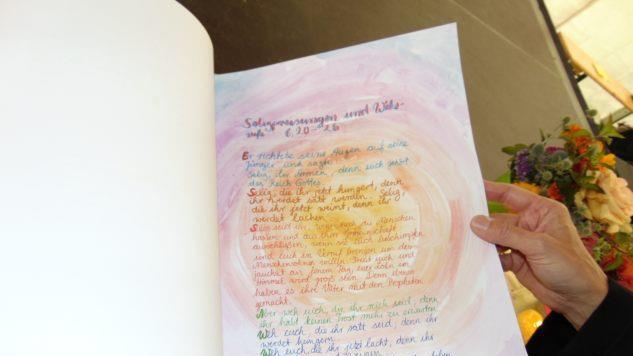 Seligpreisungen und Wehe-
rufe 6,20-26
Er richtete seine Augen auf seine
Jünger und sagte:
Selig, ihr Armen, denn euch gehört
das Reich Gottes.
Selig, die ihr jetzt hungert, denn
ihr werdet satt werden. Selig,
die ihr jetzt weint, denn ihr
werdet lachen.
Selig seid ihr, wenn euch die Menschen
hassen und aus ihrer Gemeinschaft
ausschließen, wenn sie euch beschimpfen
und euch in Verruf bringen um des
Menschensohnes willen. Freut euch und
jauchzt an jenem Tag; euer Lohn im
Himmel wird groß sein. Denn ebenso
haben es ihre Väter mit den Propheten
gemacht.
Aber weh euch, die ihr reich seid; denn
ihr habt keinen Trost mehr zu erwarten.
Weh euch, die ihr satt seid; denn ihr
werdet hungern.
Weh euch, die ihr jetzt lacht, denn ihr